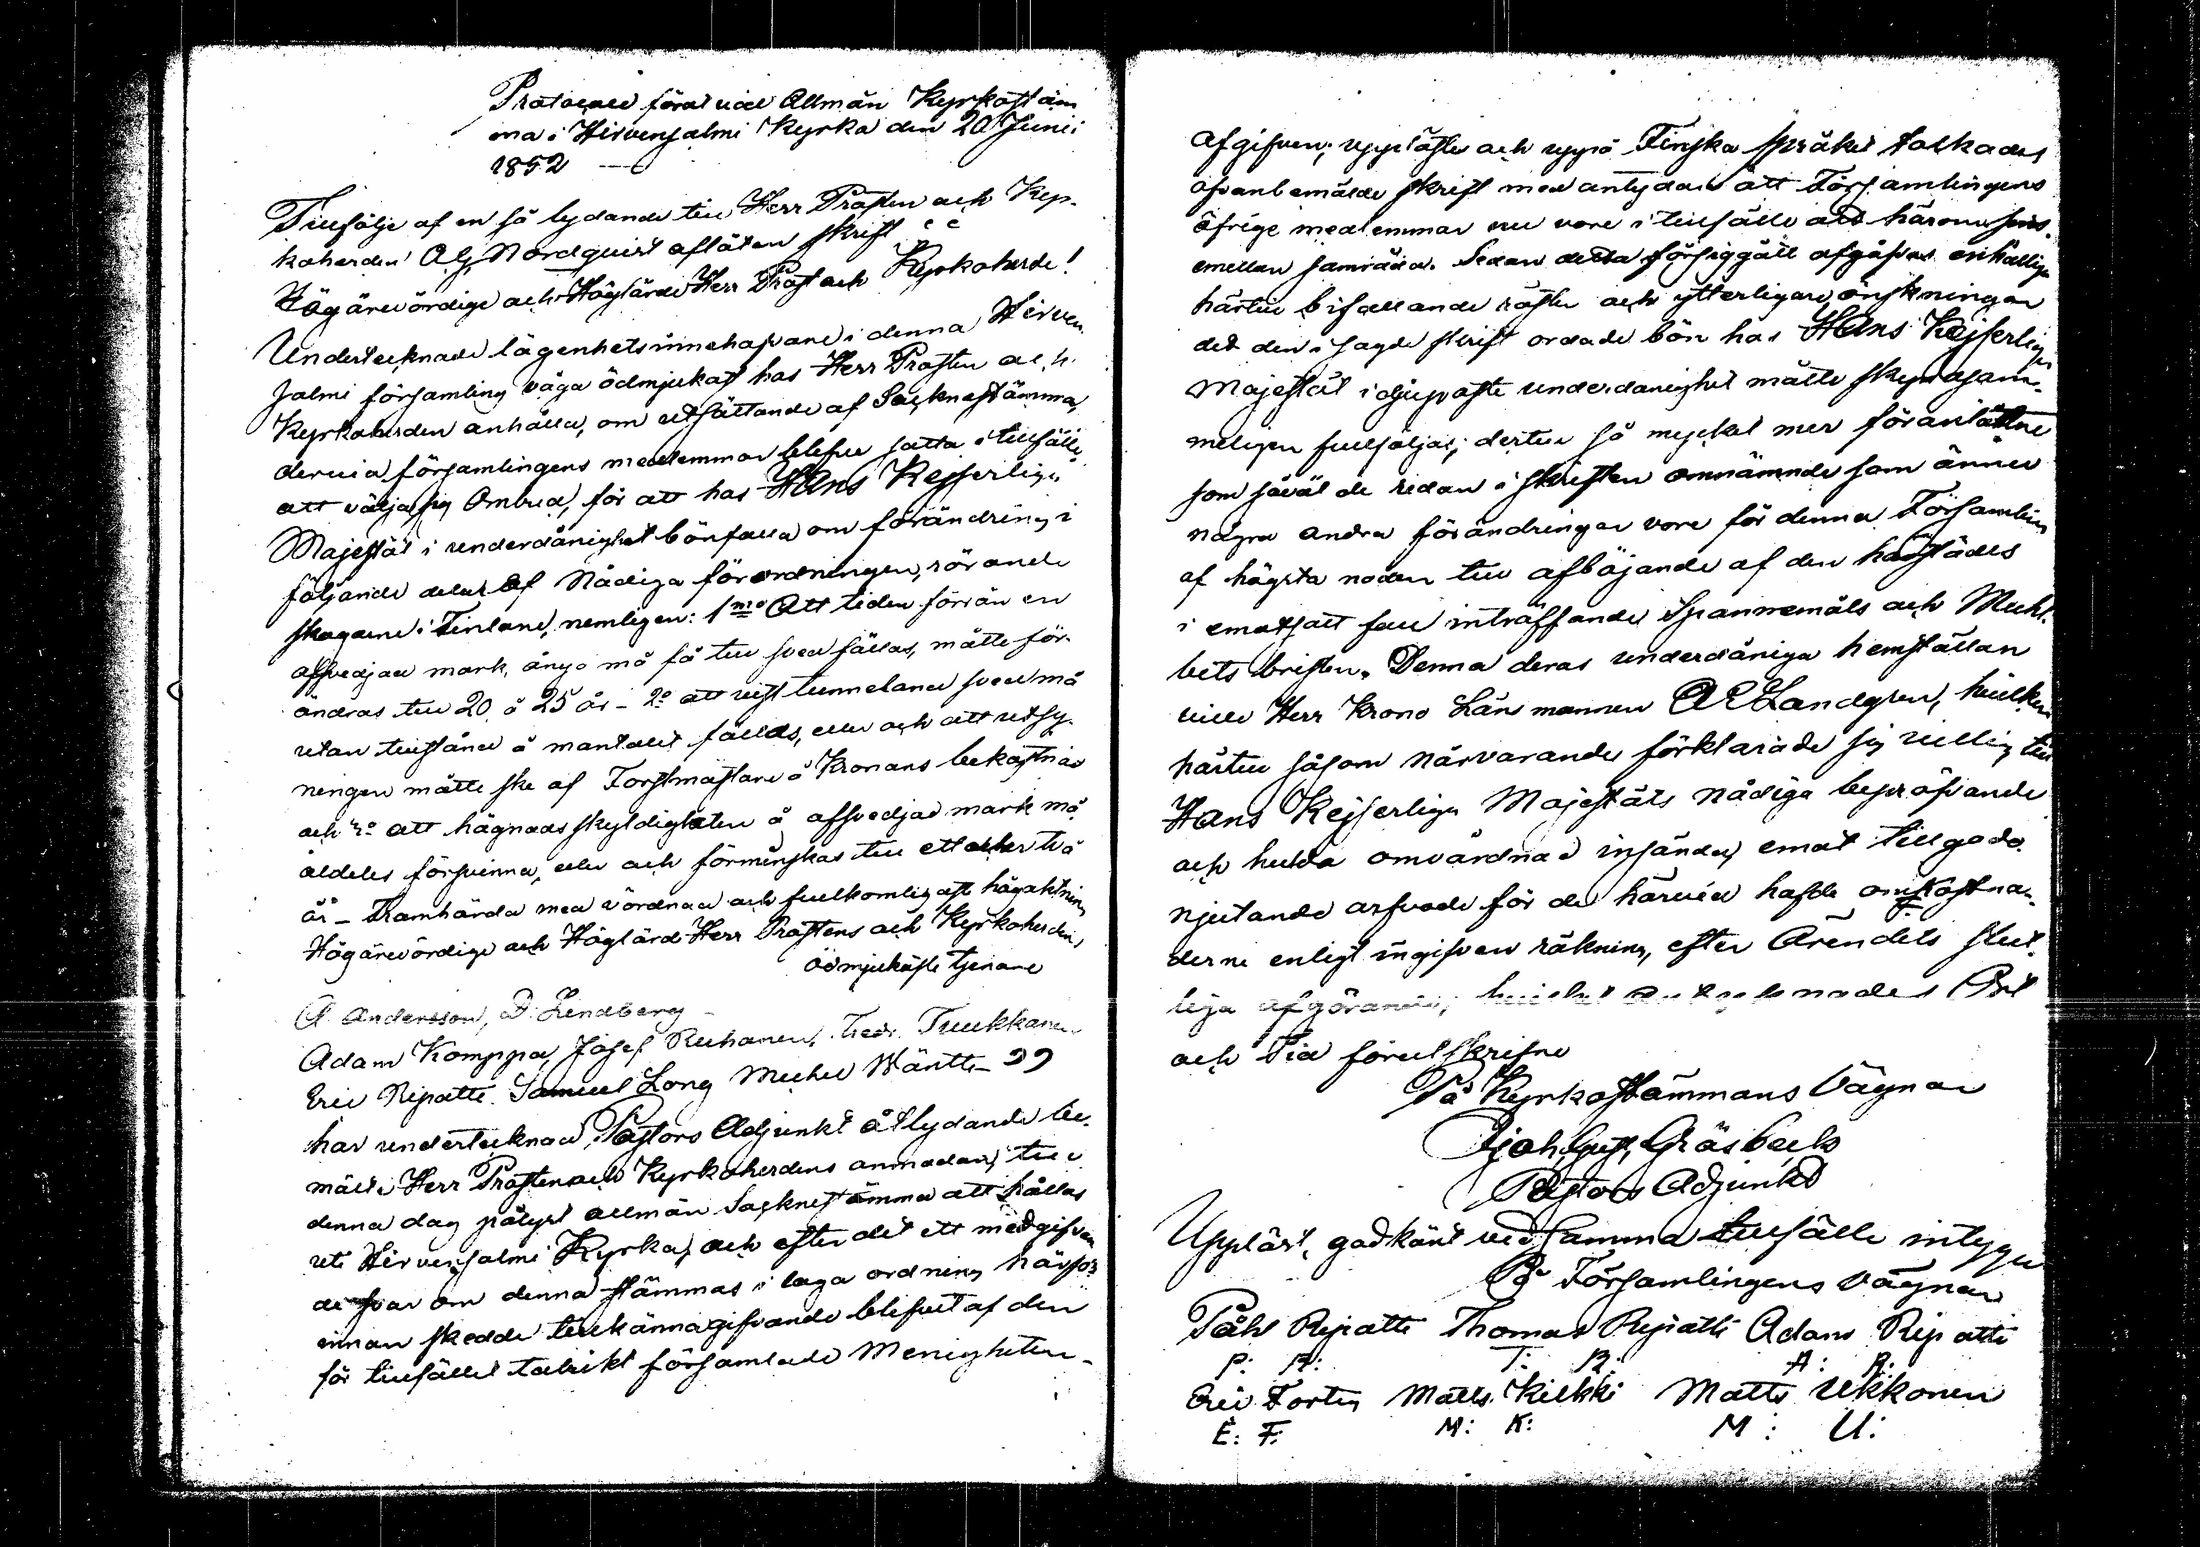 Protocoll fördt vid Allmän Kyrkostäm
ma i Hirvensalmi Kyrka den 20 Junii
1852 —
Tillfölje af en så lydande till Herr Prosten och Kyr-
koherden A G Nordquist aflåten skrift
Högärevördige och Höglärde Herr Prost och Kyrkoherde!
Undertecknade lägenhetsinnehafvare i denna Hirven
salmi församling våga ödmjukast hos Herr Prosten och
Kyrkoherden anhålla, om utsättande af Socknestämma,
dervid församlingens medlemmar blefve satta i tillfälle
att välja sig Ombud, för att hos Hans Kejserliga
Majestät i underdånighet bönfalla om förändring i
följande delar af Nådiga förordningen, rörande
skogarne i Finland, nemligen: 1mo Att tiden förrän en
afsvedjad mark, ånyo må få till sved fällas, måtte för-
ändras till 20 à 25 år – 2o att visst tunneland sved må
utan tillstånd å mantalet fällas, eller och att utsy-
ningen måtte ske af Forstmästare å Kronans bekostnad
och 3o att hägnadsskyldigheten å afsvedjad mark må
aldeles försvinna, eller och förminskas till ett eller två
år – Framhärda med vördnad och fullkomligaste högaktning
Högärevördige och Höglärd Herr Prostens och Kyrkoherden,
ödmjukaste tjenare
A Andersson, D. Lindberg
Adam Komppa, Josef Ruhanen, Fredr. Tuukkanen
Eric Ripatti Samuel Long Michel Wäntti ”
har undertecknad, Pastors Adjunkt åtlydande be-
mälte Herr Prosten och Kyrkoherdens anmodan, till
denna dag pålyst allmän Socknestämma att hållas
uti Hirvensalmi Kyrka, och efter det ett medgifvan
de svar om denna stämmas i laga ordning härför
innan skedde tillkännagifvande blifvit af den
för tillfället talrikt församlade Menigheten
afgifven; upplästes och uppå Finska språket tolkades
ofvanbemälde skrift med antydan att Församlingens
öfrige medlemmar nu vore i tillfälle att härom sins
emellan samråda. Sedan detta försiggått afgåfvos enhällige
härtill bifallande röster och ytterligare önskningar
det den i sagde skrift ordade bön hos Hans Kejserliga
Majestät i djupaste underdånighet måtte skyndsam-
meligen fullföljas; dertill så mycket mer föranlåtne
som såväl de redan i skriften omnämnde som ännu
några andra förändringar vore för denna Församling
af högsta nöden till afböjande af den härstädes
i ematsatt fall inträffande Spannemåls och Mulle
bets bristen. Denna deras underdåniga hemställan
ville Herr Krono Länsmannen A E Landgren, hvilken
härtill såsom närvarande förklarade sig villig till
Hans Kejserliga Majestäts nådiga bepröfvande
och hulda omvårdnad insända, emot tillgodo
njutande arfvode för de härvid hafde omkostna-
derne enligt ingifven räkning, efter Ärendets slut-
liga afgörande; hvilket antecknades Ort
och Tid förutskrifne
På Kyrkostämmans Vägnar
Joh. Gust. Gråsbeck
Pastors Adjunkt
Uppläst, godkänt vid samma tillfälle intyga
På Församlingens vägnar
Påhl Ripatti Thomas Ripatti Adam Ripatti
P: R: T: R: A: R:
Eric Fortin Matts Kilkki Matts Ukkonen
E: F: M: K: M: U: